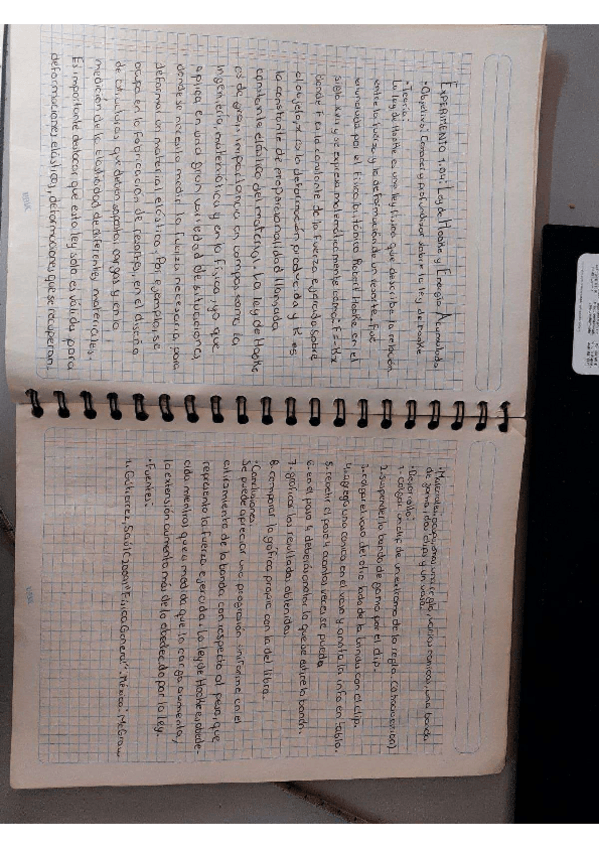 Experimento 1.04: Ley de Hooke y Energía Acumulada
• Objetivo: Conocer y profundizar sobre la ley de Hooke
• Teoría:
La Ley de Hooke es una ley física que describe la relación
entre la fuerza y la deformación de un resorte, fue
formulada por el físico británico Robert Hooke en el
siglo XVII y se expresa matemáticamente como: F = -Kx
donde F es la constante de la fuerza ejercida sobre
el objeto, x es la deformación producida y K es
la constante de proporcionalidad llamada
constante elástica del material. La ley de Hooke
es de gran importancia en campos como la
ingeniería, matemática y en la física, ya que
aplica en una gran variedad de situaciones
donde se necesita medir la fuerza necesaria para
deformar un material elástico. Por ejemplo, se
ocupa en la fabricación de resortes, en el diseño
de estructuras que deben soportar cargas y en la
medición de la elasticidad de diferentes materiales.
Es importante destacar que esta ley solo es válida para
deformaciones elásticas, deformaciones que se recuperan.
• Materiales: una regla, varias canicas, una banda
de goma, dos clips y un vaso.
• Desarrollo:
1. Colgar un clip de un extremo de la regla
2. Suspender la banda de goma por el clip.
3. colgar el vaso del otro lado de la banda con el clip.
4. agrega una canica en el vaso y anota la info en tabla.
5. repetir el paso 4 cuantas veces se pueda
6. en el paso 4 deberás anotar lo que se estire la banda.
7. graficar los resultados obtenidos.
8. comparar la gráfica propia con la del libro.
• Conclusiones:
Se puede apreciar una progresión uniforme en el
estiramiento de la banda con respecto al peso, que
representa la fuerza ejercida. La ley de Hooke es obede-
cida mientras que a medida que la carga aumenta,
la extensión aumenta más de lo obedecido por la ley.
• Fuentes:
1. Gutiérrez, Saúl (2009) "Física General". México: McGraw